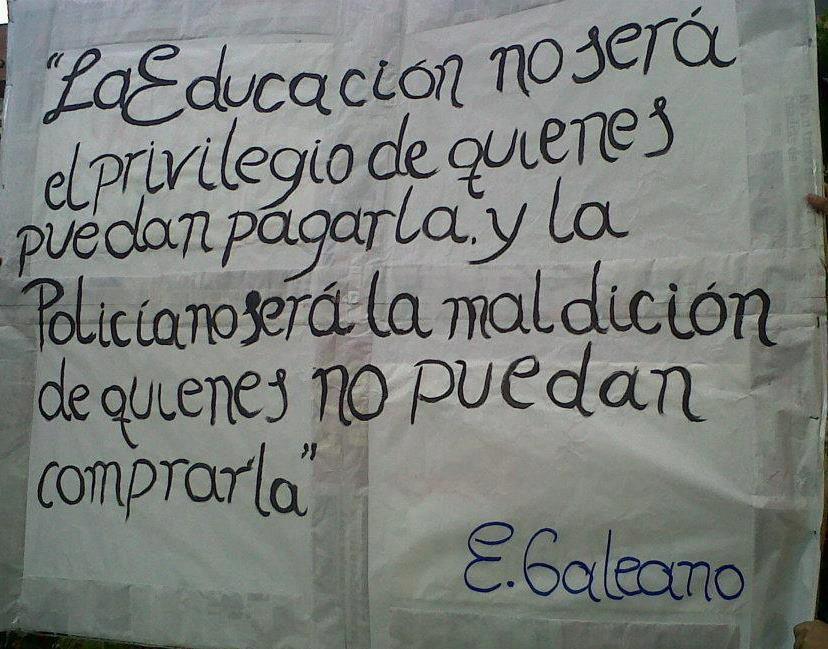 "La Educación no será
el privilegio de quienes
puedan pagarla. y la
Policía no será la maldición
de quienes no puedan
comprarla"
E. Galeano